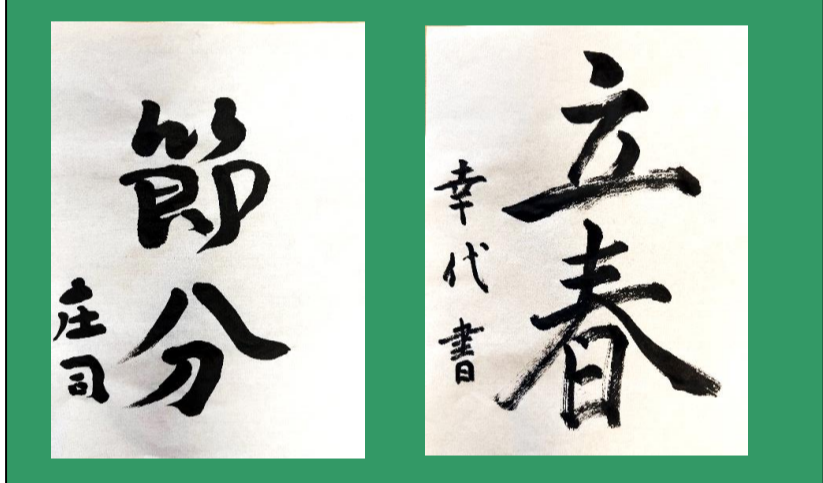 節分
庄司
立春
幸代 書